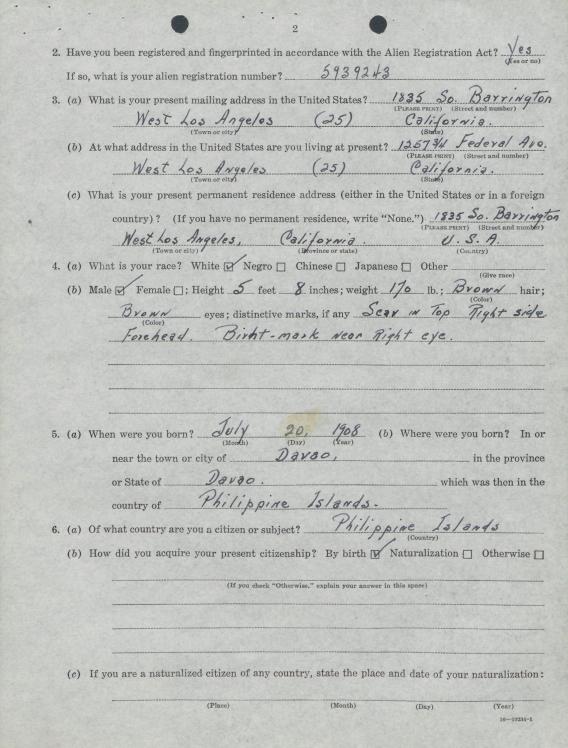 2
2. Have you been registered and fingerprinted in accordance with the Alien Registration Act? Yes
(Yes or no)
If so, what is your alien registration number? 5939243
3. (a) What is your present mailing address in the United States? 1835 So. Barrington
(PLEASE PRINT) (Street and number)
West Los Angeles (25) California.
(Town or city) (State)
(b) At what address in the United States are you living at present? 12573/4 Federal Ave.
(PLEASE PRINT) (Street and number)
West Los Angeles (25) California.
(Town or city) (State)
(c) What is your present permanent residence address (either in the United States or in a foreign
country)? (If you have no permanent residence, write "None.") 1835 So. Barrington
(PLEASE PRINT) (Street and number)
West Los Angeles, California. U. S. A.
(Town or city) (Province or state) (Country)
4. (a) What is your race? White ☑ Negro ☐ Chinese ☐ Japanese ☐ Other
(Give race)
(b) Male ☑ Female ☐; Height 5 feet 8 inches; weight 170 lb.; Brown hair;
(Color)
Brown eyes; distinctive marks, if any Scar in Top Right side
(Color)
Forehead. Birht-mark near Right eye.
5. (a) When were you born? July 20, 1908 (b) Where were you born? In or
(Month) (Day) (Year)
near the town or city of Davao, in the province
or State of Davao. which was then in the
country of Philippine Islands.
6. (a) Of what country are you a citizen or subject? Philippine Islands
(Country)
(b) How did you acquire your present citizenship? By birth ☑ Naturalization ☐ Otherwise ☐
(If you check "Otherwise," explain your answer in this space)
(c) If you are a naturalized citizen of any country, state the place and date of your naturalization:
(Place) (Month) (Day) (Year)
16—19234-1